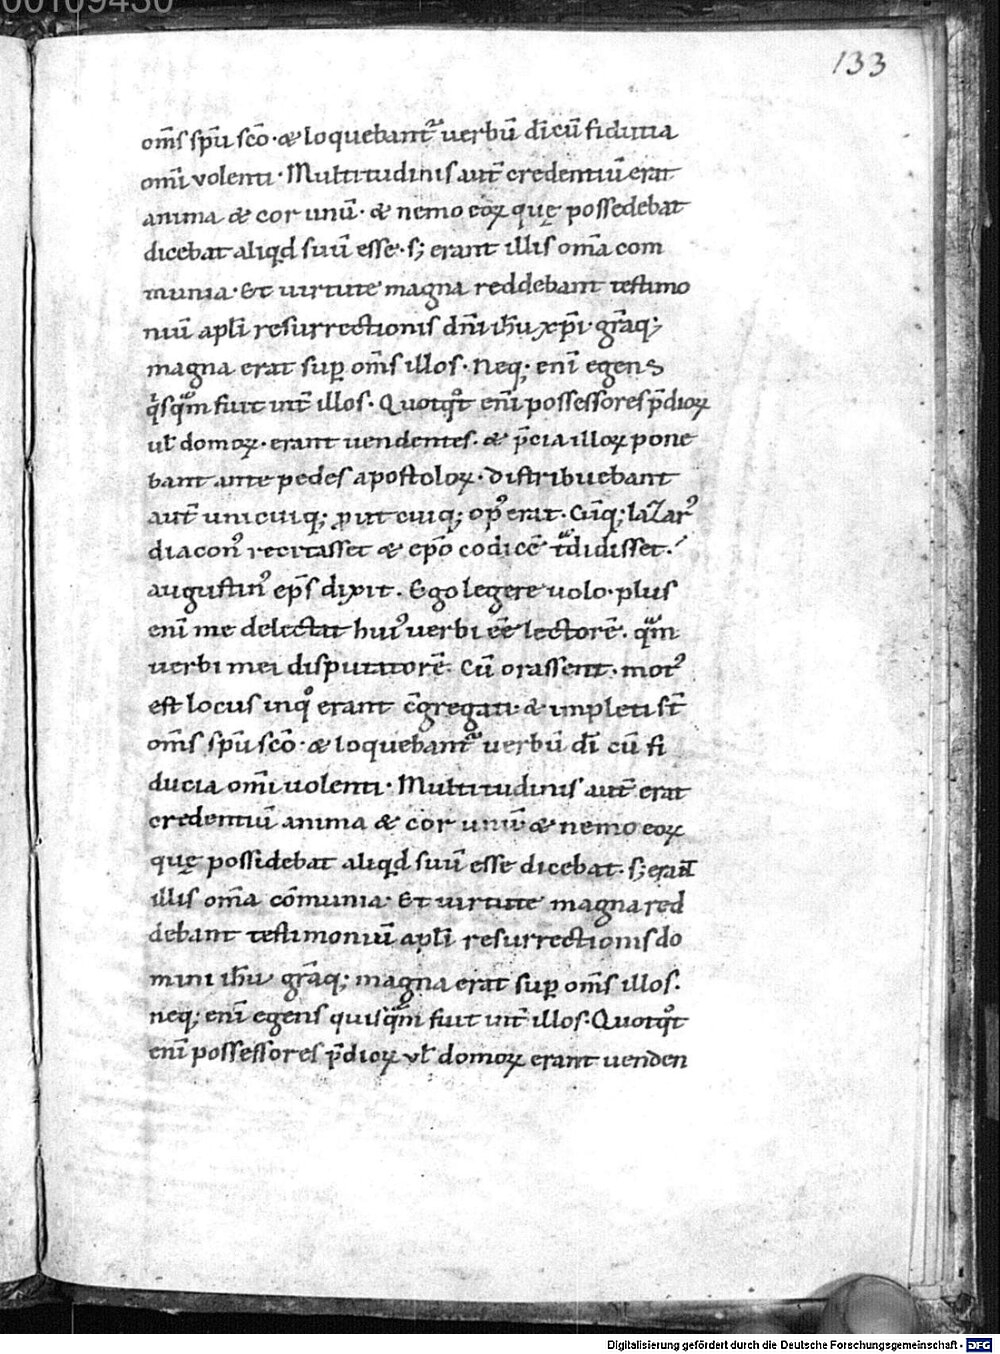 00109430
133
om̅s sp̅u sc̅o · & loquebantᷣ verbu̅ di̅ cu̅ fiducia
om̅i volenti · Multitudinis aut̅ credentiu̅ erat
anima & cor unu̅ · & nemo eoꝝ quę possedebat
dicebat aliqd̅ suu̅ esse · s; erant illis om̅a com
munia · Et uirtute magna reddebant testimo
niu̅ apl̅i resurrectionis dn̅i ih̅u xp̅i · gr̅aq;
magna erat suꝑ om̅s illos · Neq; eni̅ egens
qͥsqᷓm fuit int̅ illos · Quotqͦt eni̅ possessores p̅dioꝝ
ul̅ domoꝝ · erant uendentes · & p̅cia illoꝝ pone
bant ante pedes apostoloꝝ · distribuebant
aut̅ unicuiq; ꝓut cuiq; opꝰ erat · Cu̅q; lazarꝰ
diaconꝰ recitasset & ep̅o codice̅ tᷓdidisset ·
augustinꝰ ep̅s dixit · Ego legere uolo · plus
eni̅ me delectat huiꝰ uerbi ee̅ lectore̅ · qᷓm
uerbi mei disputatore̅ · Cu̅ orassent · motꝰ
est locus inqͦ erant c̅gregati · & impleti st̅
om̅s sp̅u sc̅o · & loquebantᷣ uerbu̅ di̅ cu̅ fi
ducia om̅i uolenti · Multitudinis aut̅ erat
credentiu̅ anima & cor unu̅ · & nemo eoꝝ
quę possidebat aliqd̅ suu̅ esse dicebat · s; erant
illis om̅a co̅munia · Et uirtute magna red
debant testimoniu̅ apl̅i resurrectionis do
mini ih̅u gr̅aq; magna erat suꝑ om̅s illos ·
neq; eni̅ egens quisqᷓm fuit int̅ illos · Quotqͦt
eni̅ possessores p̅dioꝝ vl̅ domoꝝ erant uenden
Digitalisierung gefördert durch die Deutsche Forschungsgemeinschaft - DFG